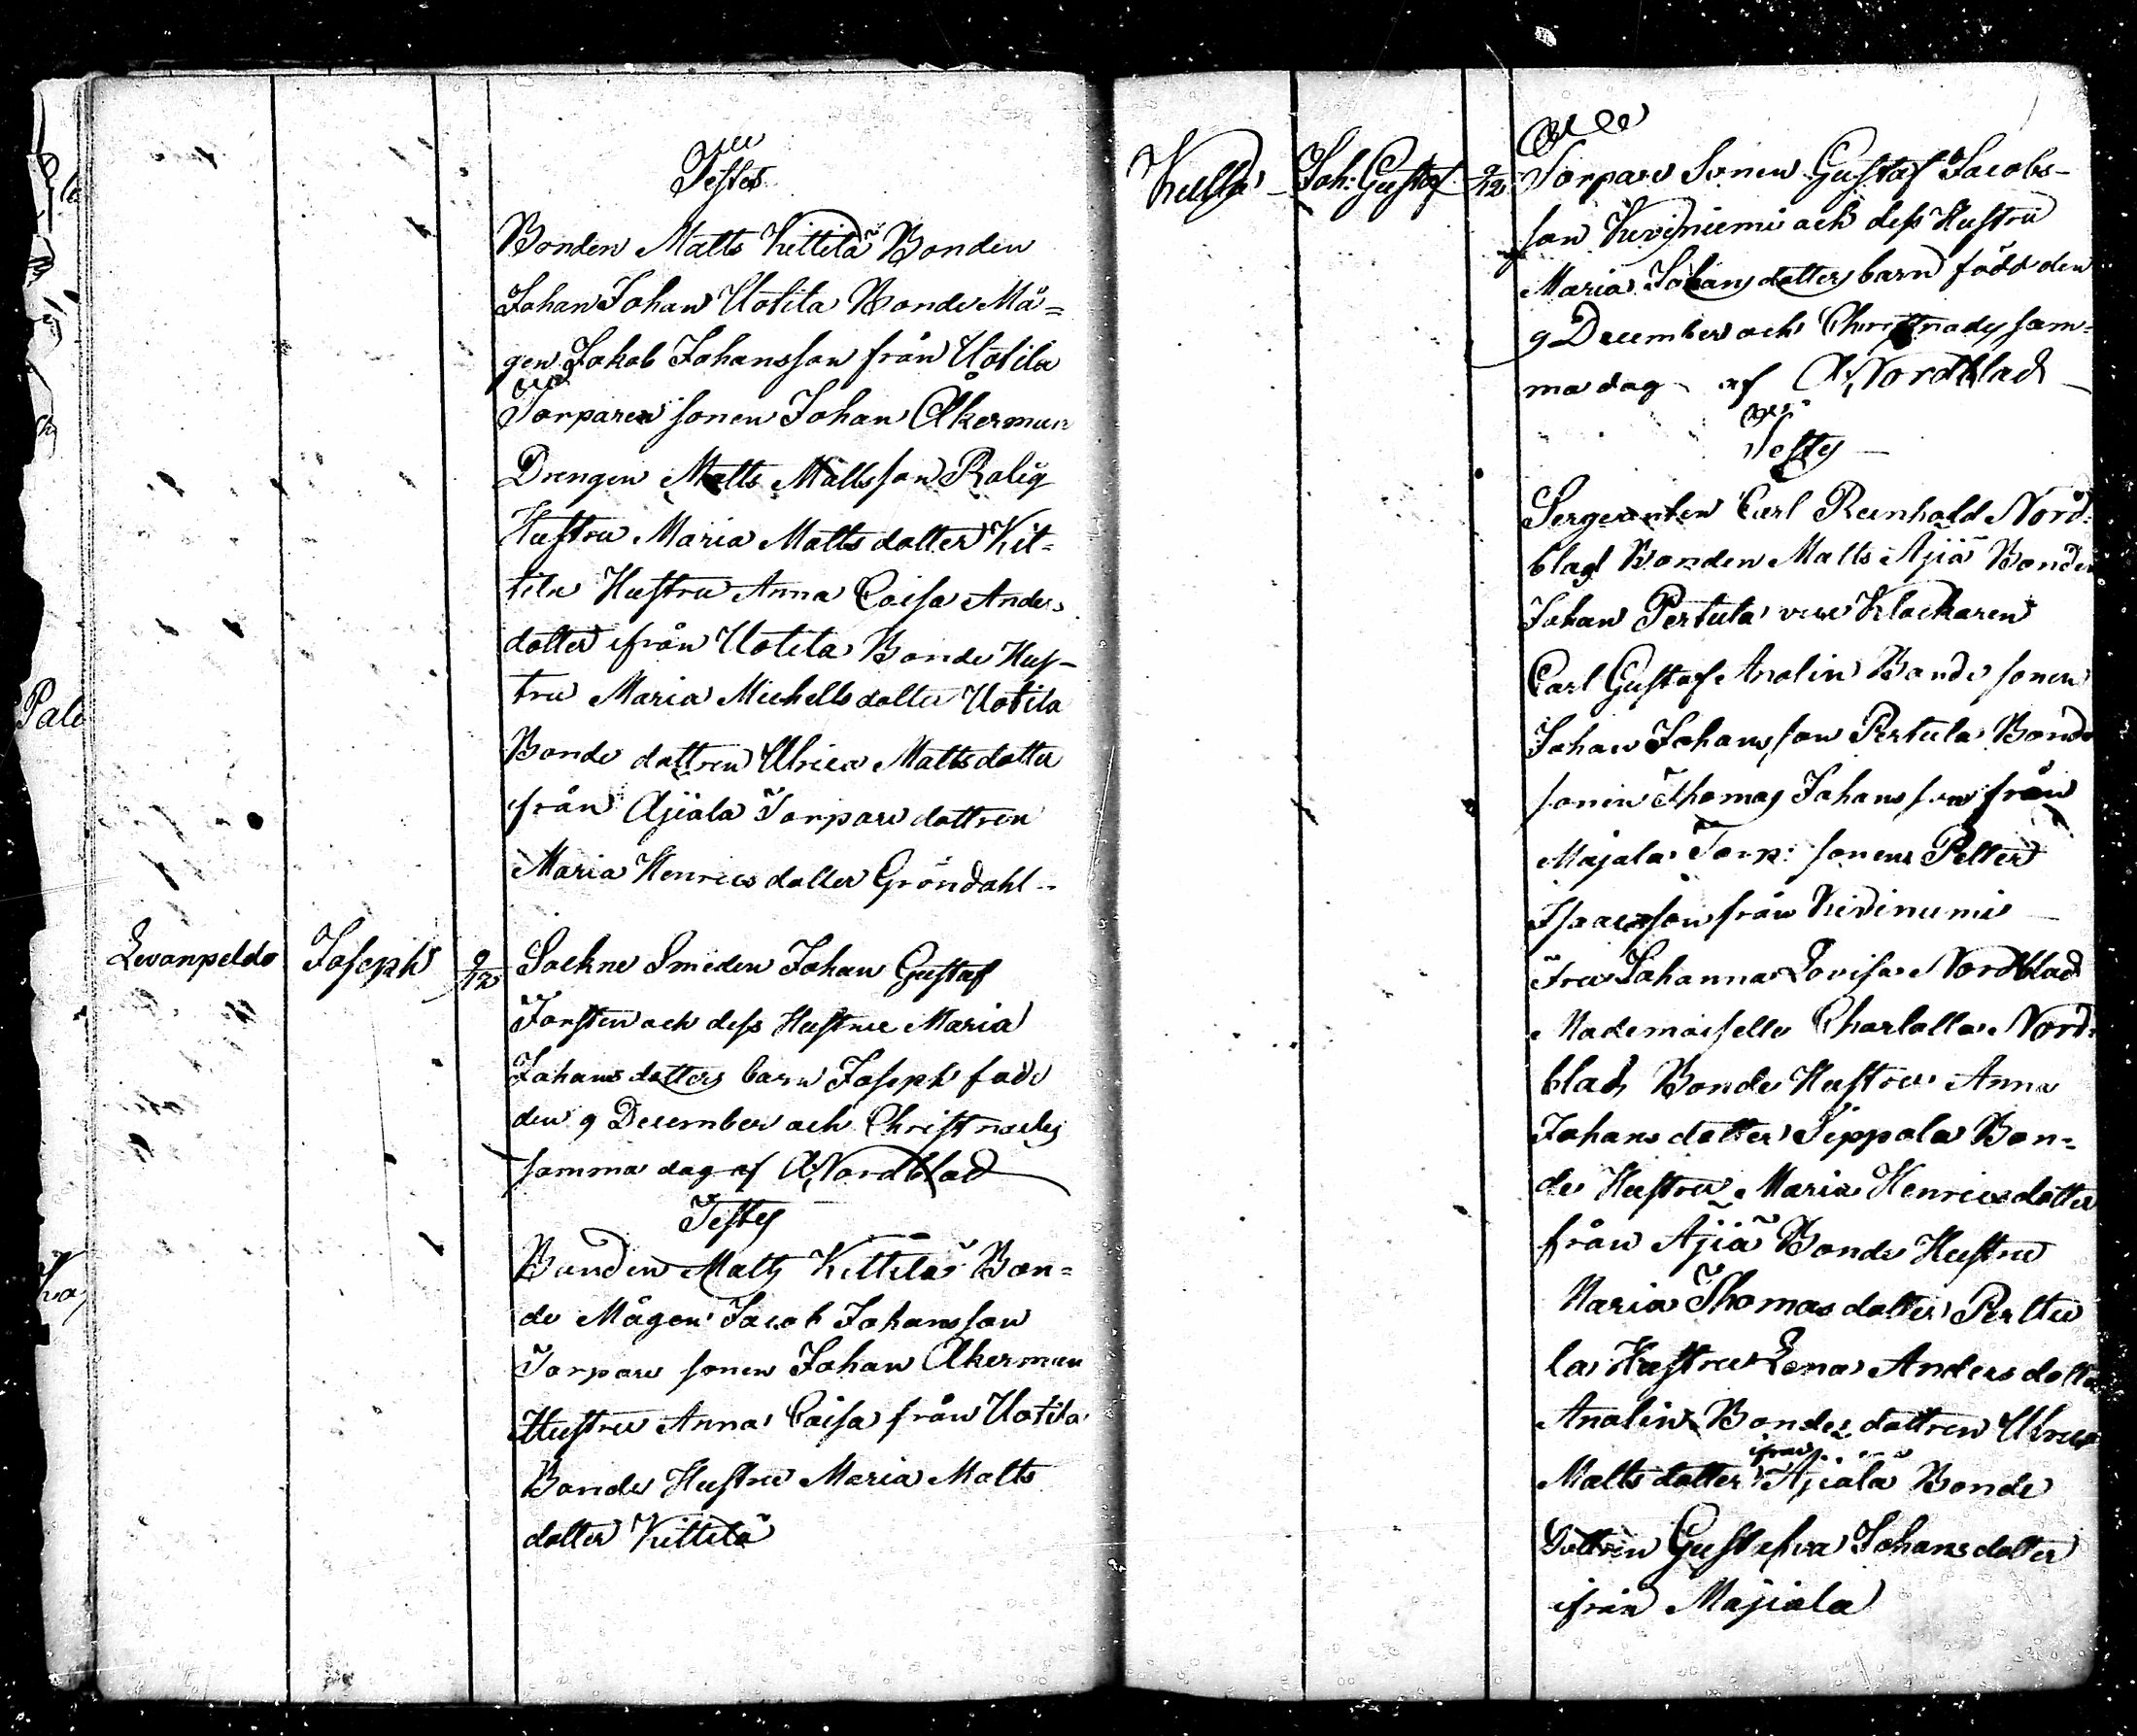 Testes
Bonden Matts Kittilä Bonden
Johan Johan Uotila Bonde Må=
gen Jakob Johansson från Uotila
Torparen sonen Johan Åkerman
Drengen Matts Mattsson Rolig
Hustru Maria Mattsdotter Kit=
tilä Hustru Anna Caisa Anders
dotter ifrån Uotila Bonde Hus-
tru Maria Michellsdotter Uotila
Bonde dottren Ulrica Mattsdotter
ifrån Äjiälä Torpare dottren
Maria Henricsdotter Gröndahl
Levonpeldo Joseph 9/12 Sockne Smeden Johan Gustaf
Forsten och dess Hustru Maria
Johansdotters barn Joseph född
den 9 December och Christnades
samma dag af A Nordblad
Testes
Bonden Matts Kittilä Bon=
de Mågen Jacob Johansson
Torpare sonen Johan Åkerman
Hustru Anna Caisa från Uotila
Bonde Hustru Maria Matts
dotter Kittilä
Kulla Joh: Gustaf 9/12 Torpare Sonen Gustaf Jacobs-
son Kiviniemi och dess Hustru
Maria Johansdotters barn född den
9 December och Christnades sam=
ma dag af A Nordblad
Testes
Sergeanten Carl Reinhold Nord=
blad Bonden Matts Äjiä Bonden
Johan Pertula vice Klockaren
Carl Gustaf Analin Bonde sonen
Johan Johansson Pertula Bonde
sonen Thomas Johansson från
Majala Torp: sonen Petter
Isaacsson från Kiviniemi
Fru Johanna Lovisa Nordblad
Mademoiselle Charlotta Nord=
blad Bonde Hustru Anna
Johansdotter Sippola Bon=
de Hustru Maria Henricsdotter
från Äjiä Bonde Hustru
Maria Thomasdotter Pertu
la Hustru Lena Andersdotter
Analin Bonde dottren Ulrica
Mattsdotter ifrån Äjiälä Bonde
Dottren Gustafva Johansdotter
ifrån Majiala